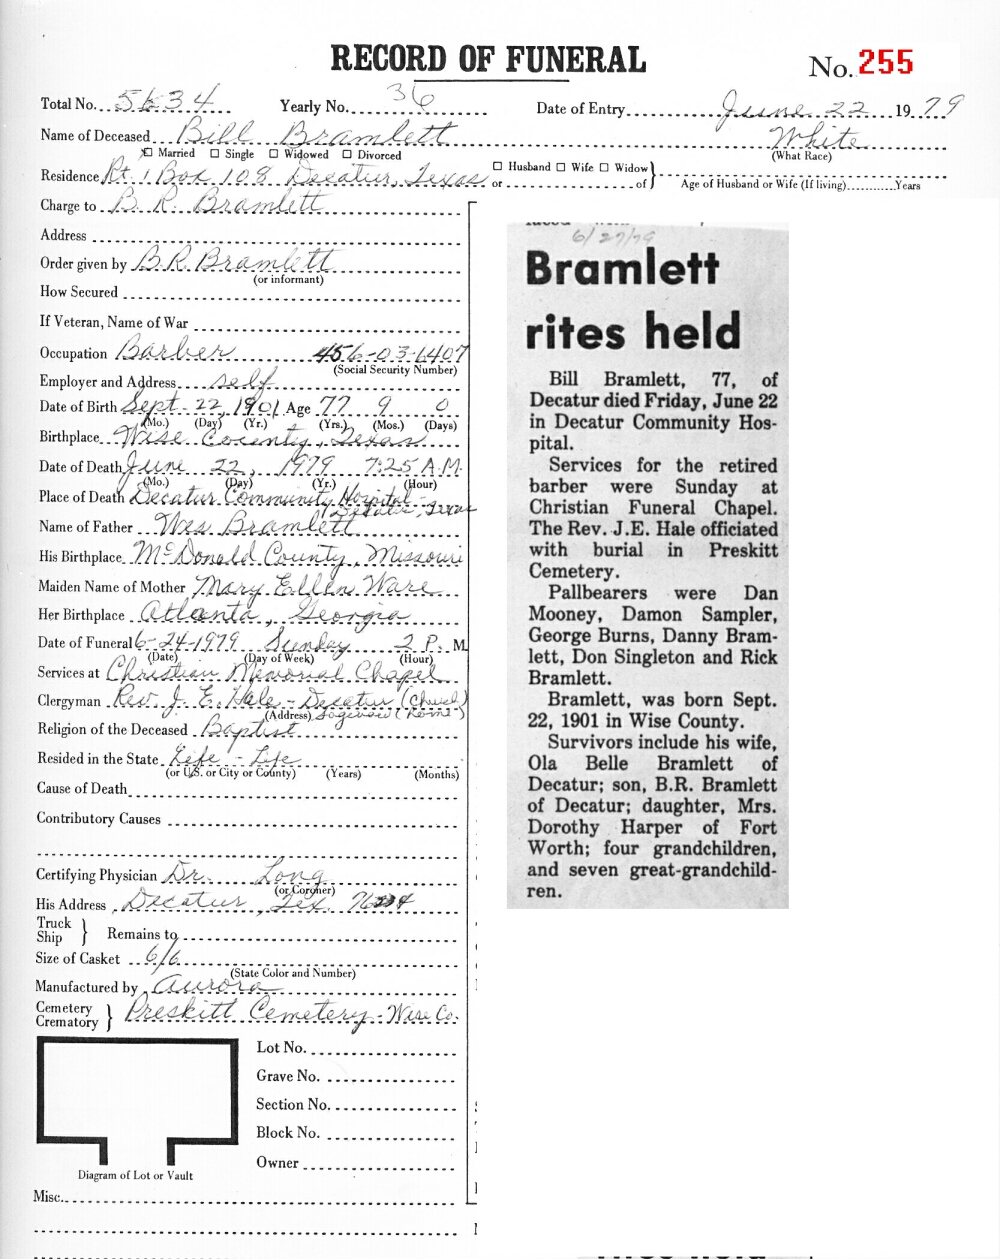 RECORD OF FUNERAL
No. 255
Total No. 5634 Yearly No. 36 Date of Entry June 22 1979
Name of Deceased Bill Bramlett White
☒ Married ☐ Single ☐ Widowed ☐ Divorced (What Race)
Residence Rt. 1 Box 108 Decatur, Texas or ☐ Husband ☐ Wife ☐ Widow of } Age of Husband or Wife (If living) Years
Charge to B. R. Bramlett
Address
Order given by B.R. Bramlett
(or informant)
How Secured
If Veteran, Name of War
Occupation Barber 456-03-6407
(Social Security Number)
Employer and Address self
Date of Birth Sept. 22, 1901 Age 77 9 0
(Mo.) (Day) (Yr.) (Yrs.) (Mos.) (Days)
Birthplace Wise County, Texas
Date of Death June 22, 1979 7:25 A.M.
(Mo.) (Day) (Yr.) (Hour)
Place of Death Decatur Community Hospital -
Decatur, Texas
Name of Father Wes Bramlett
His Birthplace McDonald County, Missouri
Maiden Name of Mother Mary Ellen Ware
Her Birthplace Atlanta, Georgia
Date of Funeral 6-24-1979 Sunday 2 P. M.
(Date) (Day of Week) (Hour)
Services at Christian Memorial Chapel
Clergyman Rev. J. E. Hale - Decatur (Church)
(Address) (Home)
Religion of the Deceased Baptist
Resided in the State Life - Life
(or U.S. or City or County) (Years) (Months)
Cause of Death
Contributory Causes
Certifying Physician Dr. Long
(or Coroner)
His Address Decatur, Tex.
Truck
Ship } Remains to
Size of Casket 6/6
(State Color and Number)
Manufactured by Aurora
Cemetery
Crematory } Preskitt Cemetery - Wise Co.
Lot No.
Grave No.
Section No.
Block No.
Owner
Diagram of Lot or Vault
Misc.
6/27/79
Bramlett
rites held
Bill Bramlett, 77, of
Decatur died Friday, June 22
in Decatur Community Hos-
pital.
Services for the retired
barber were Sunday at
Christian Funeral Chapel.
The Rev. J.E. Hale officiated
with burial in Preskitt
Cemetery.
Pallbearers were Dan
Mooney, Damon Sampler,
George Burns, Danny Bram-
lett, Don Singleton and Rick
Bramlett.
Bramlett, was born Sept.
22, 1901 in Wise County.
Survivors include his wife,
Ola Belle Bramlett of
Decatur; son, B.R. Bramlett
of Decatur; daughter, Mrs.
Dorothy Harper of Fort
Worth; four grandchildren,
and seven great-grandchild-
ren.